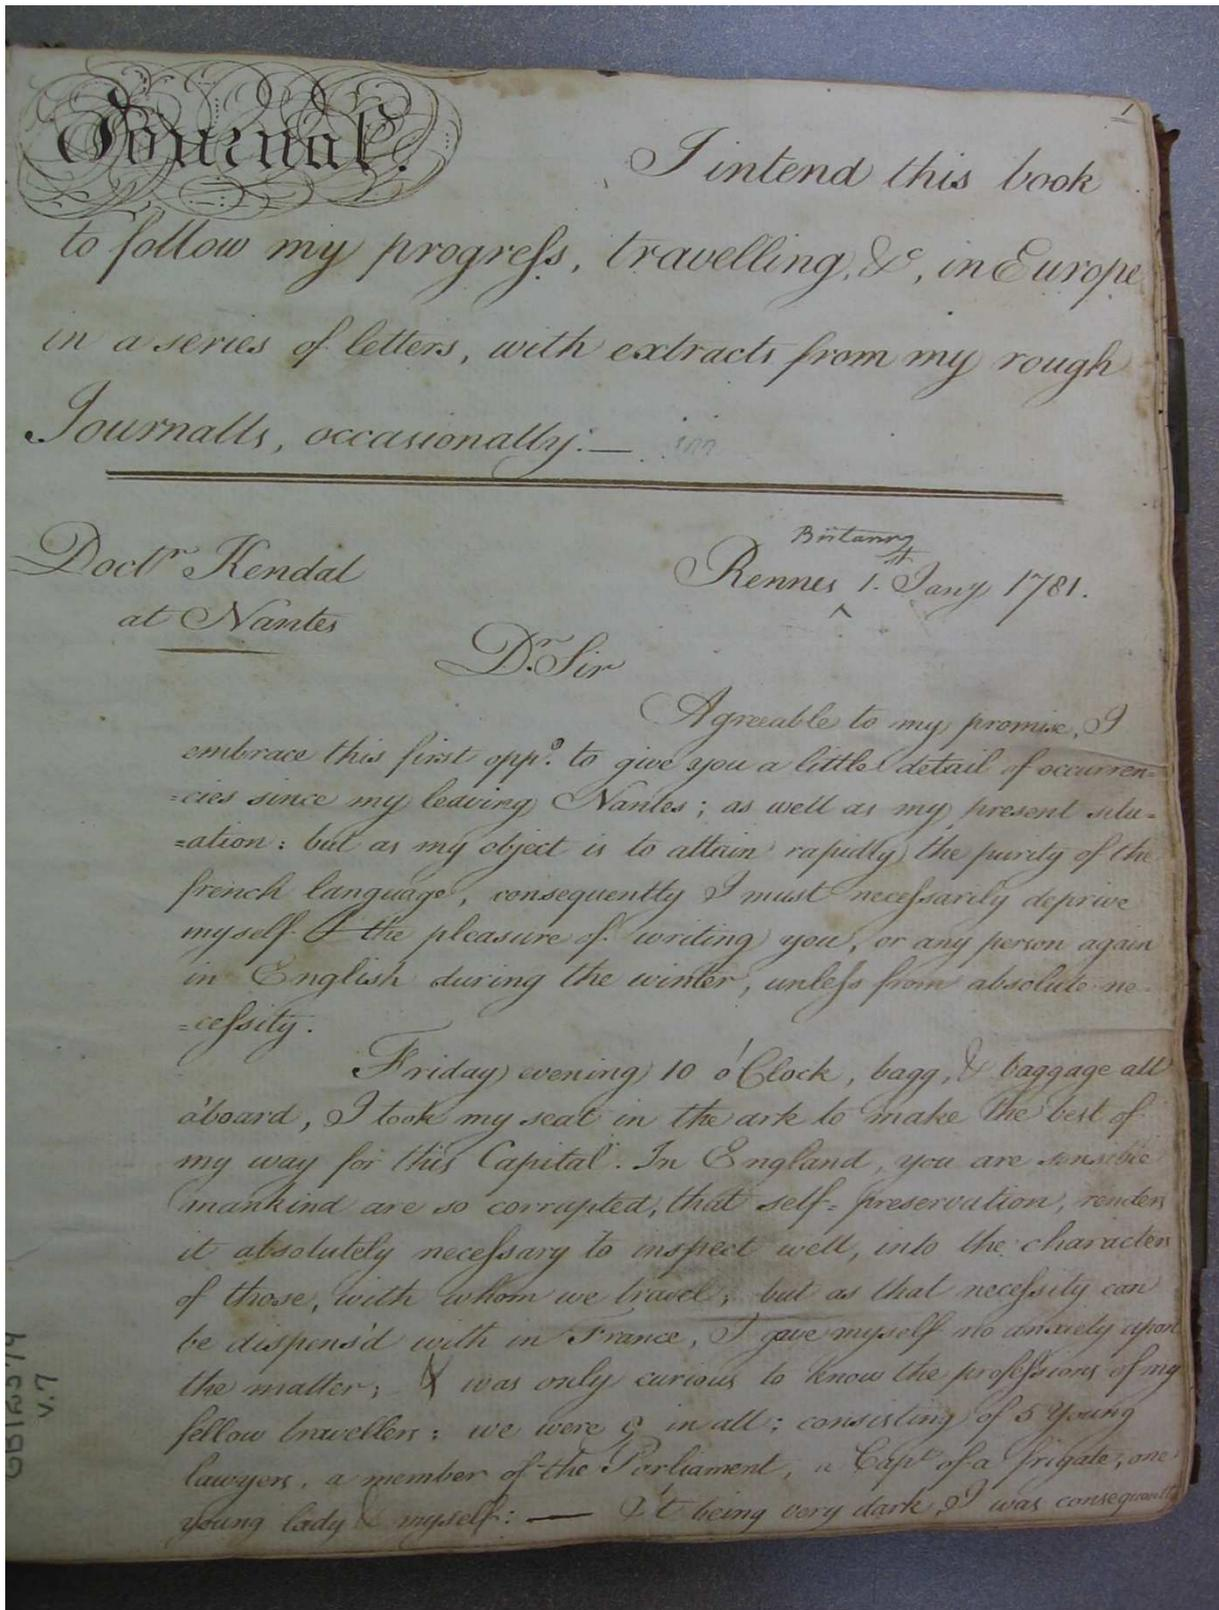 1
Journal.
I intend this book
to follow my progress, travelling, &c, in Europe
in a series of letters, with extracts from my rough
Journalls, occasionally:—
Doctr Kendal
at Nantes
Brittany
Rennes ^ 1.st Jany 1781.
Dr. Sir
Agreeable to my promise, I
embrace this first oppo. to give you a little detail of occurren=
=cies since my leaving Nantes; as well as my present situ=
=ation: but as my object is to attain rapidly the purity of the
french language, consequently I must necessarily deprive
myself of the pleasure of writing you, or any person again
in English during the winter, unless from absolute ne-
=cessity.
Friday evening 10 o'Clock, bagg, & baggage all
a'board, I took my seat in the ark to make the best of
my way for this Capital. In England, you are sensible
mankind are so corrupted, that self=preservation, renders
it absolutely necessary to inspect well, into the characters
of those, with whom we travel; but as that necessity can
be dispens'd with in France, I gave myself no anxiety upon
the matter; & was only curious to know the professions of my
fellow travellers: we were 9 in all: consisting of 5 young
lawyers, a member of the Parliament, a Capt of a frigate, one
young lady & myself: — It being very dark, I was consequently
GB1825.14
v.7